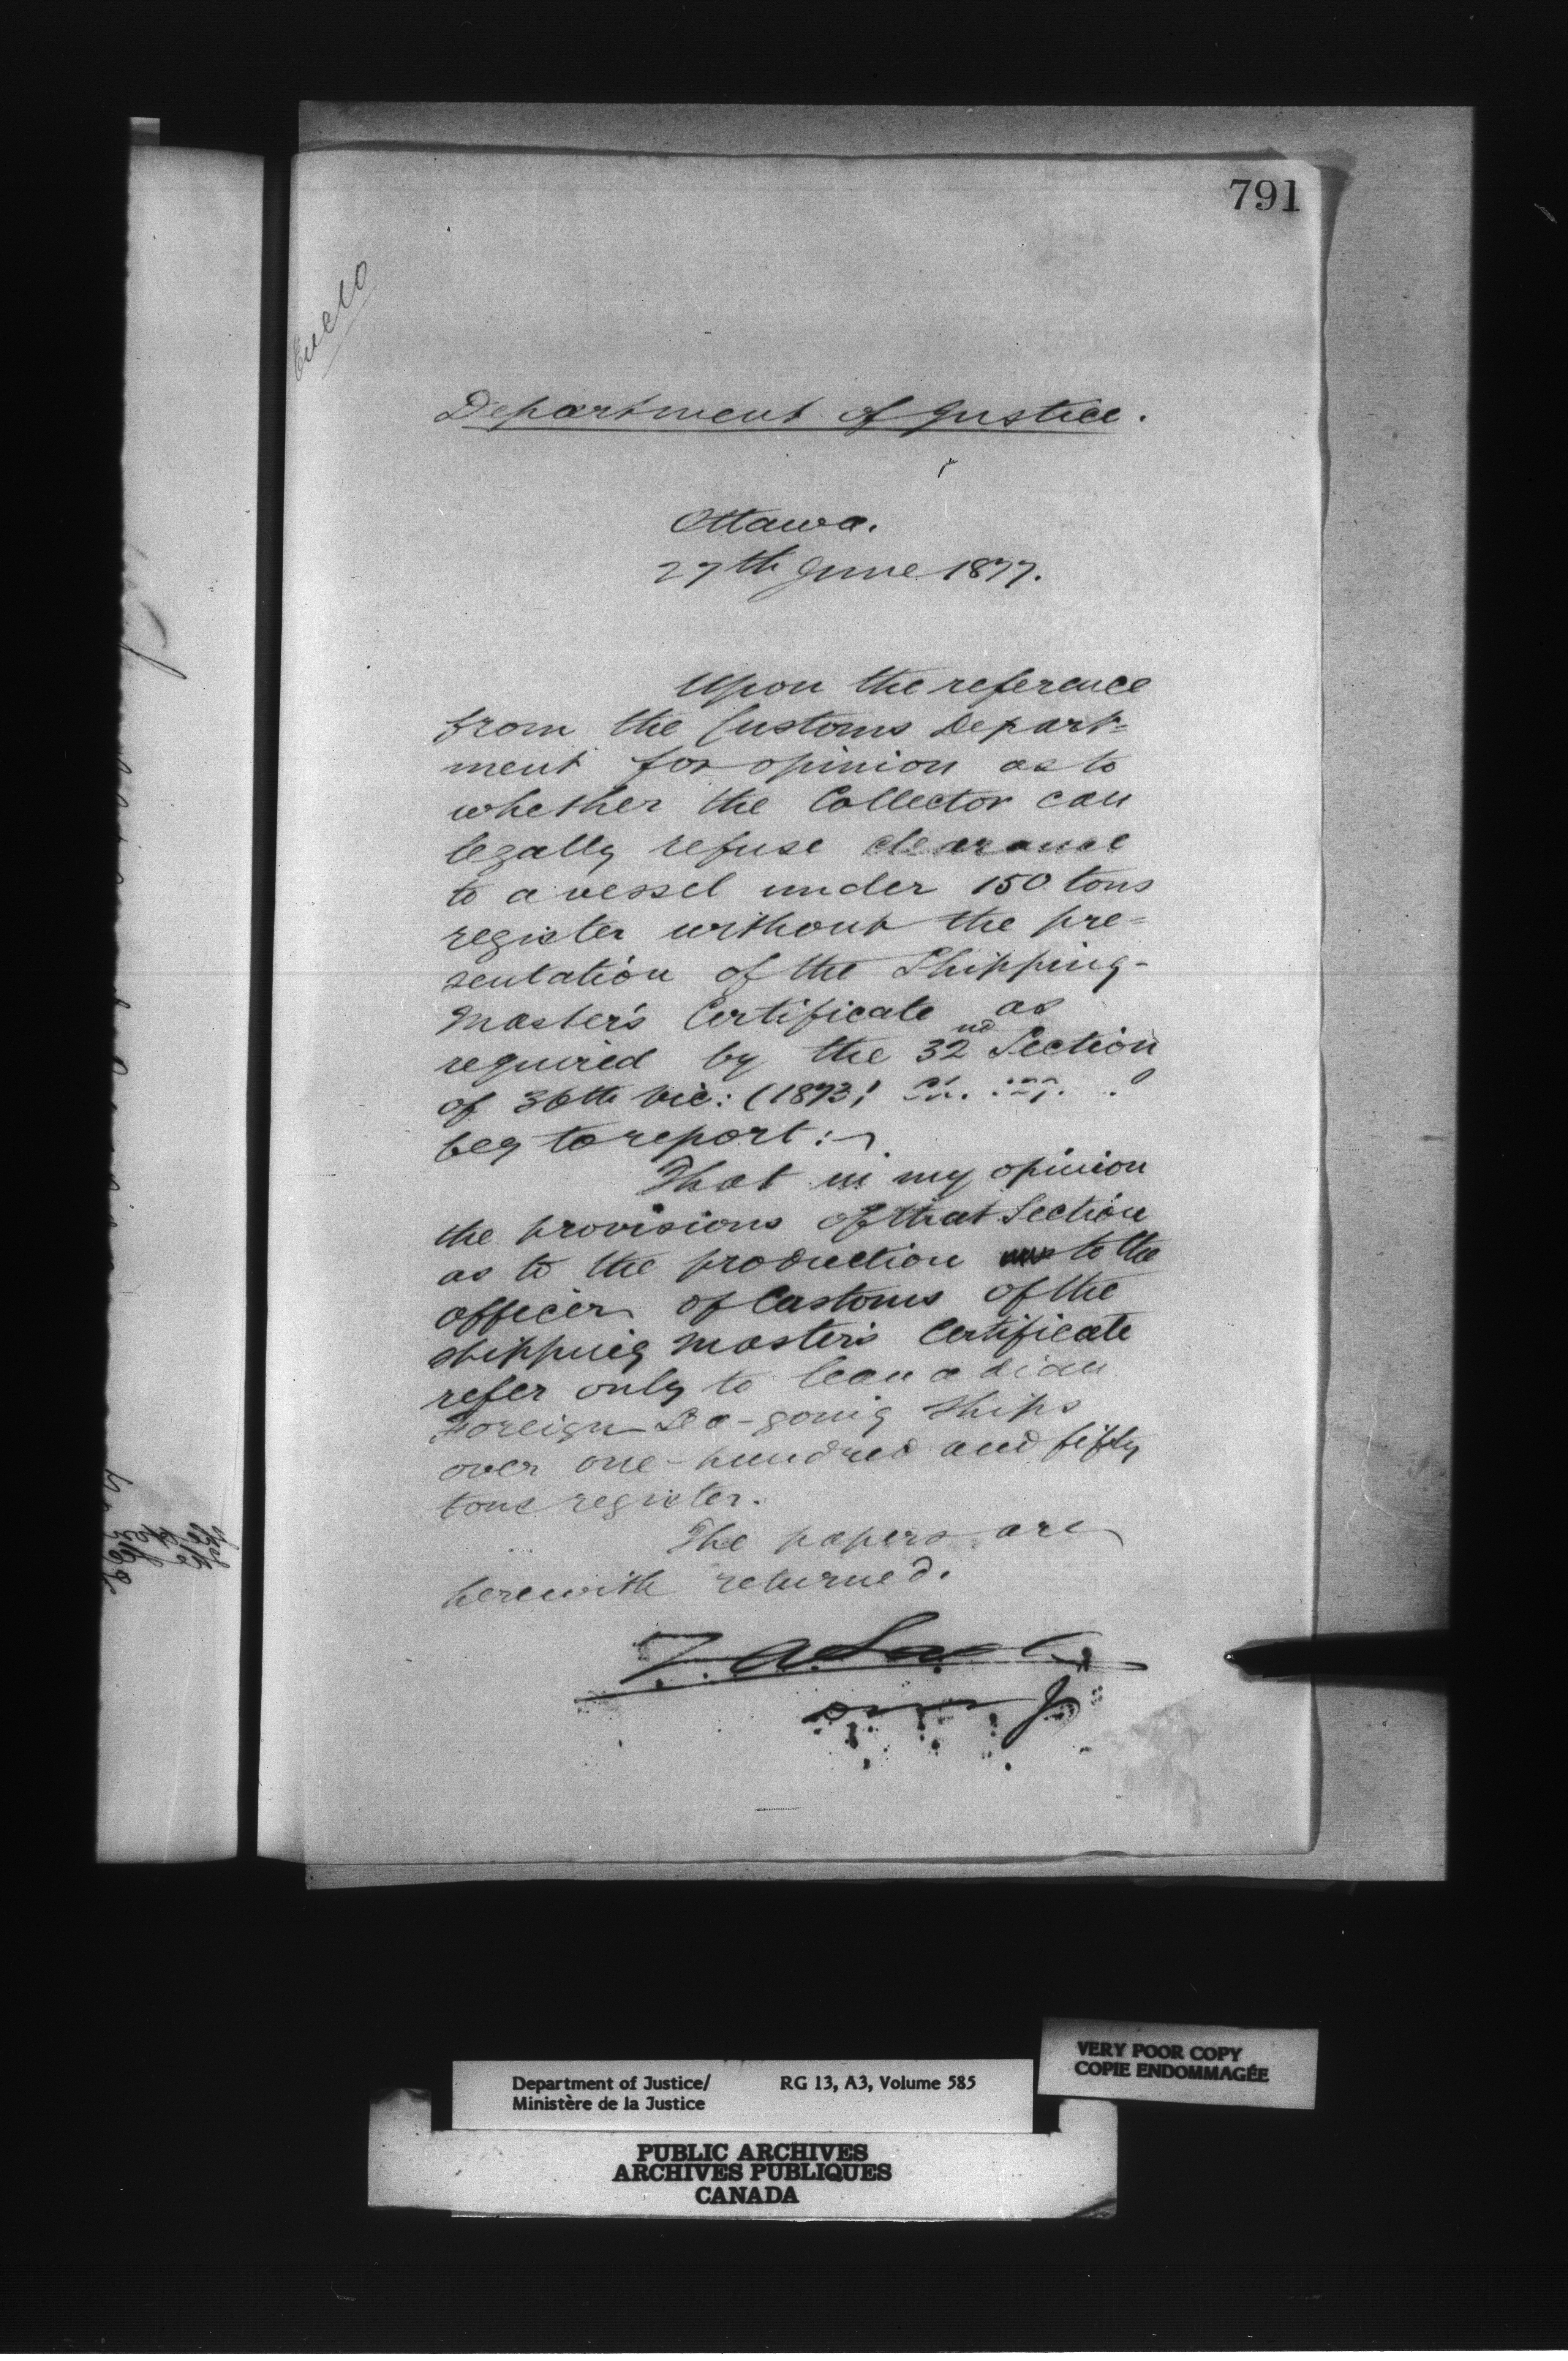 791
Enclo
Department of Justice.
Ottawa.
27th June 1877.
Upon the reference
from the Customs Depart=
ment for opinion as to
whether the Collector can
legally refuse clearance
to a vessel under 150 tons
register without the pre=
sentation of the Shipping-
Master's Certificate as
required by the 32nd Section
of 36th Vic: (1873)
beg to report:
That in my opinion
the provisions of that Section
as to the production to the
officer of Customs of the
shipping master's Certificate
refer only to Canadian
Foreign Sea-going Ships
over one-hundred and fifty
tons register.
The papers are
herewith returned.
VERY POOR COPY
COPIE ENDOMMAGÉE
Department of Justice/ RG 13, A3, Volume 585
Ministère de la Justice
PUBLIC ARCHIVES
ARCHIVES PUBLIQUES
CANADA